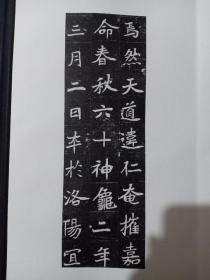 焉然天道違仁奄摧嘉
命春秋六十神龜二年
三月二日卒於洛陽宜